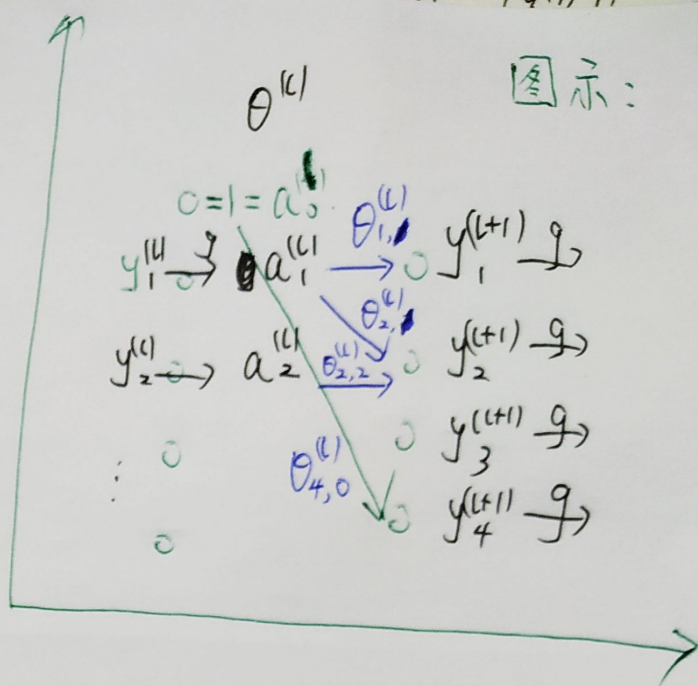 图示:
θ^(l)
0=1=a_0^(l)
θ_{1,1}^(l)
y_1^(l) g→ a_1^(l) → y_1^(l+1) g→
θ_{2,1}^(l)
y_2^(l) → a_2^(l) θ_{2,2}^(l) → y_2^(l+1) g→
y_3^(l+1) g→
θ_{4,0}^(l)
⋮
y_4^(l+1) g→